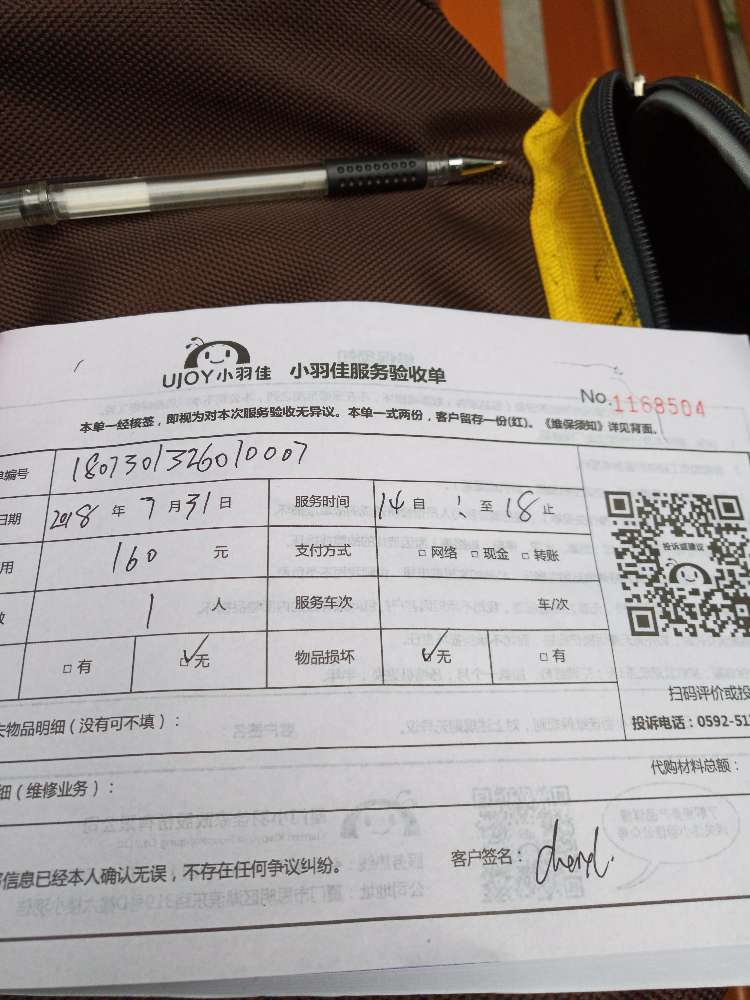 UJOY小羽佳 小羽佳服务验收单
No.1168504
本单一经核签，即视为对本次服务验收无异议。本单一式两份，客户留存一份(红)。《维保须知》详见背面。
单编号 1807301326010007
日期 2018 年 7 月 31 日 服务时间 14 自 1 至 18 止
用 160 元 支付方式 □网络 □现金 □转账
数 1 人 服务车次 车/次
□有 ☑无 物品损坏 ☑无 □有
投诉或建议
扫码评价或投
投诉电话：0592-51
失物品明细（没有可不填）：
代购材料总额：
细（维修业务）：
信息已经本人确认无误，不存在任何争议纠纷。
客户签名： cheryl